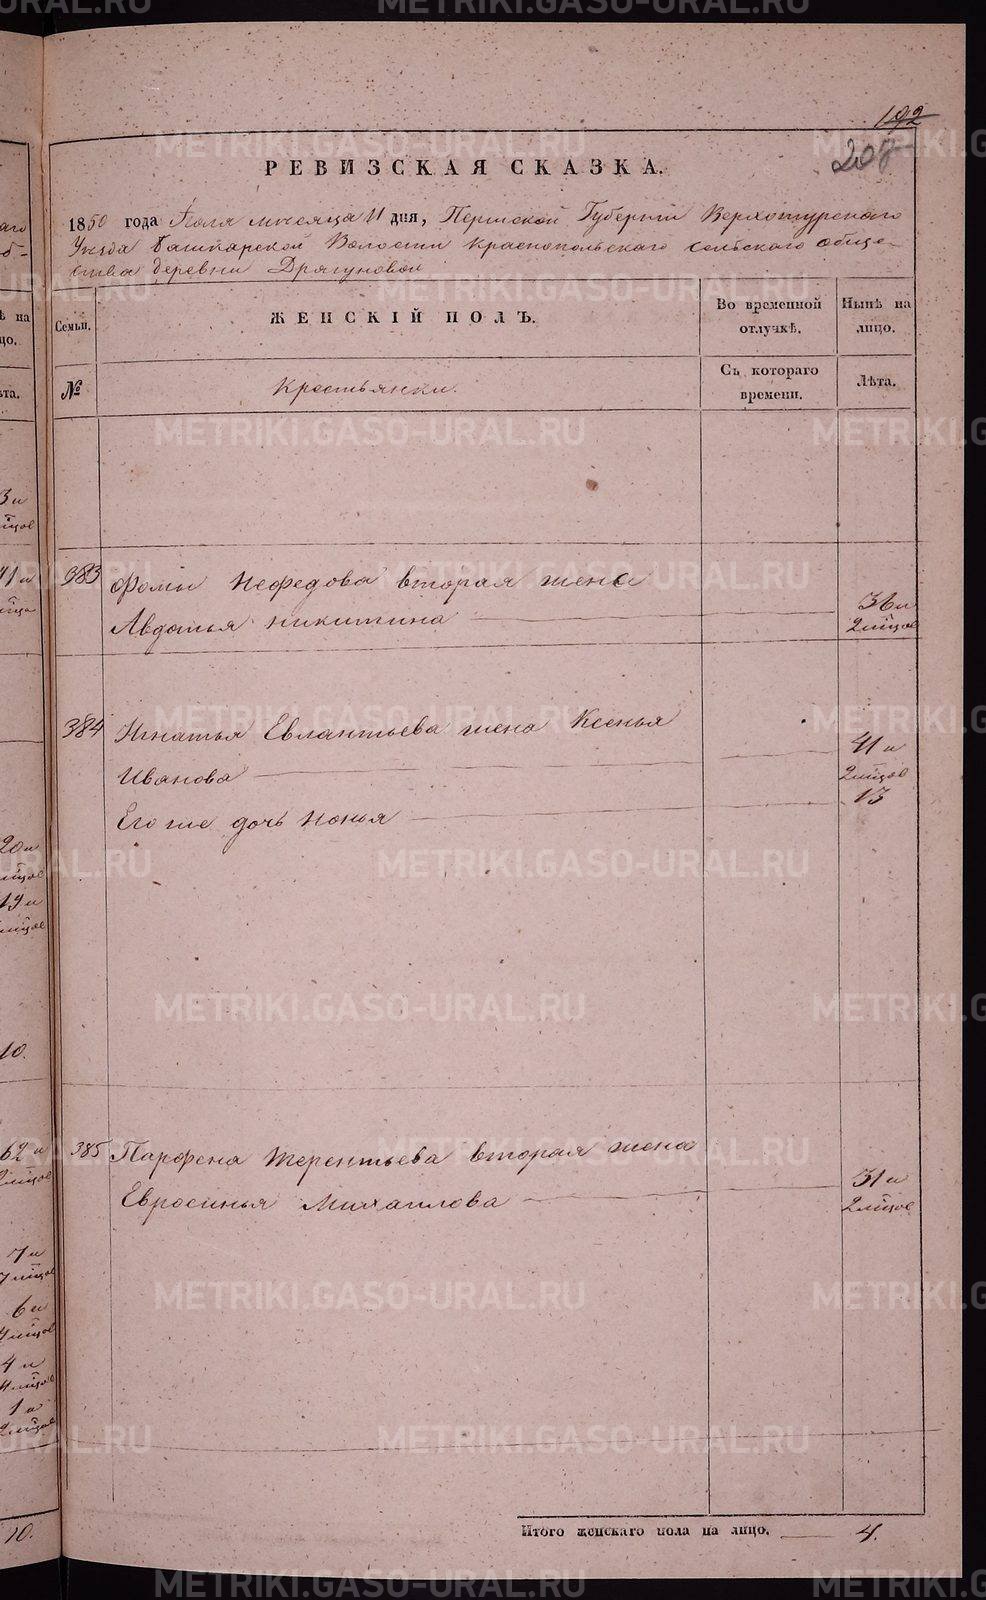 192
207
РЕВИЗСКАЯ СКАЗКА.
1850 года Іюля мѣсяца 11 дня, Пермской Губерніи Верхотурскаго
Уѣзда Башкарской Волости Краснопольскаго сельскаго обще-
ства деревни Дрягуновой
Семьи.
ЖЕНСКІЙ ПОЛЪ.
Во временной отлучкѣ.
Нынѣ на лицо.
№
Крестьянки.
Съ котораго времени.
Лѣта.
383 Фомы Нефедова вторая жена
Авдотья Никитина — 36 и 2 мѣцов
384 Игнатья Евлантьева жена Ксенья
Иванова — 41 и 2 мѣцов
Его же дочь Нонья — 13
385 Парфена Терентьева вторая жена
Евросинья Михаилова — 31 и 2 мѣцов
Итого женскаго пола на лицо. — 4.
METRIKI.GASO-URAL.RU